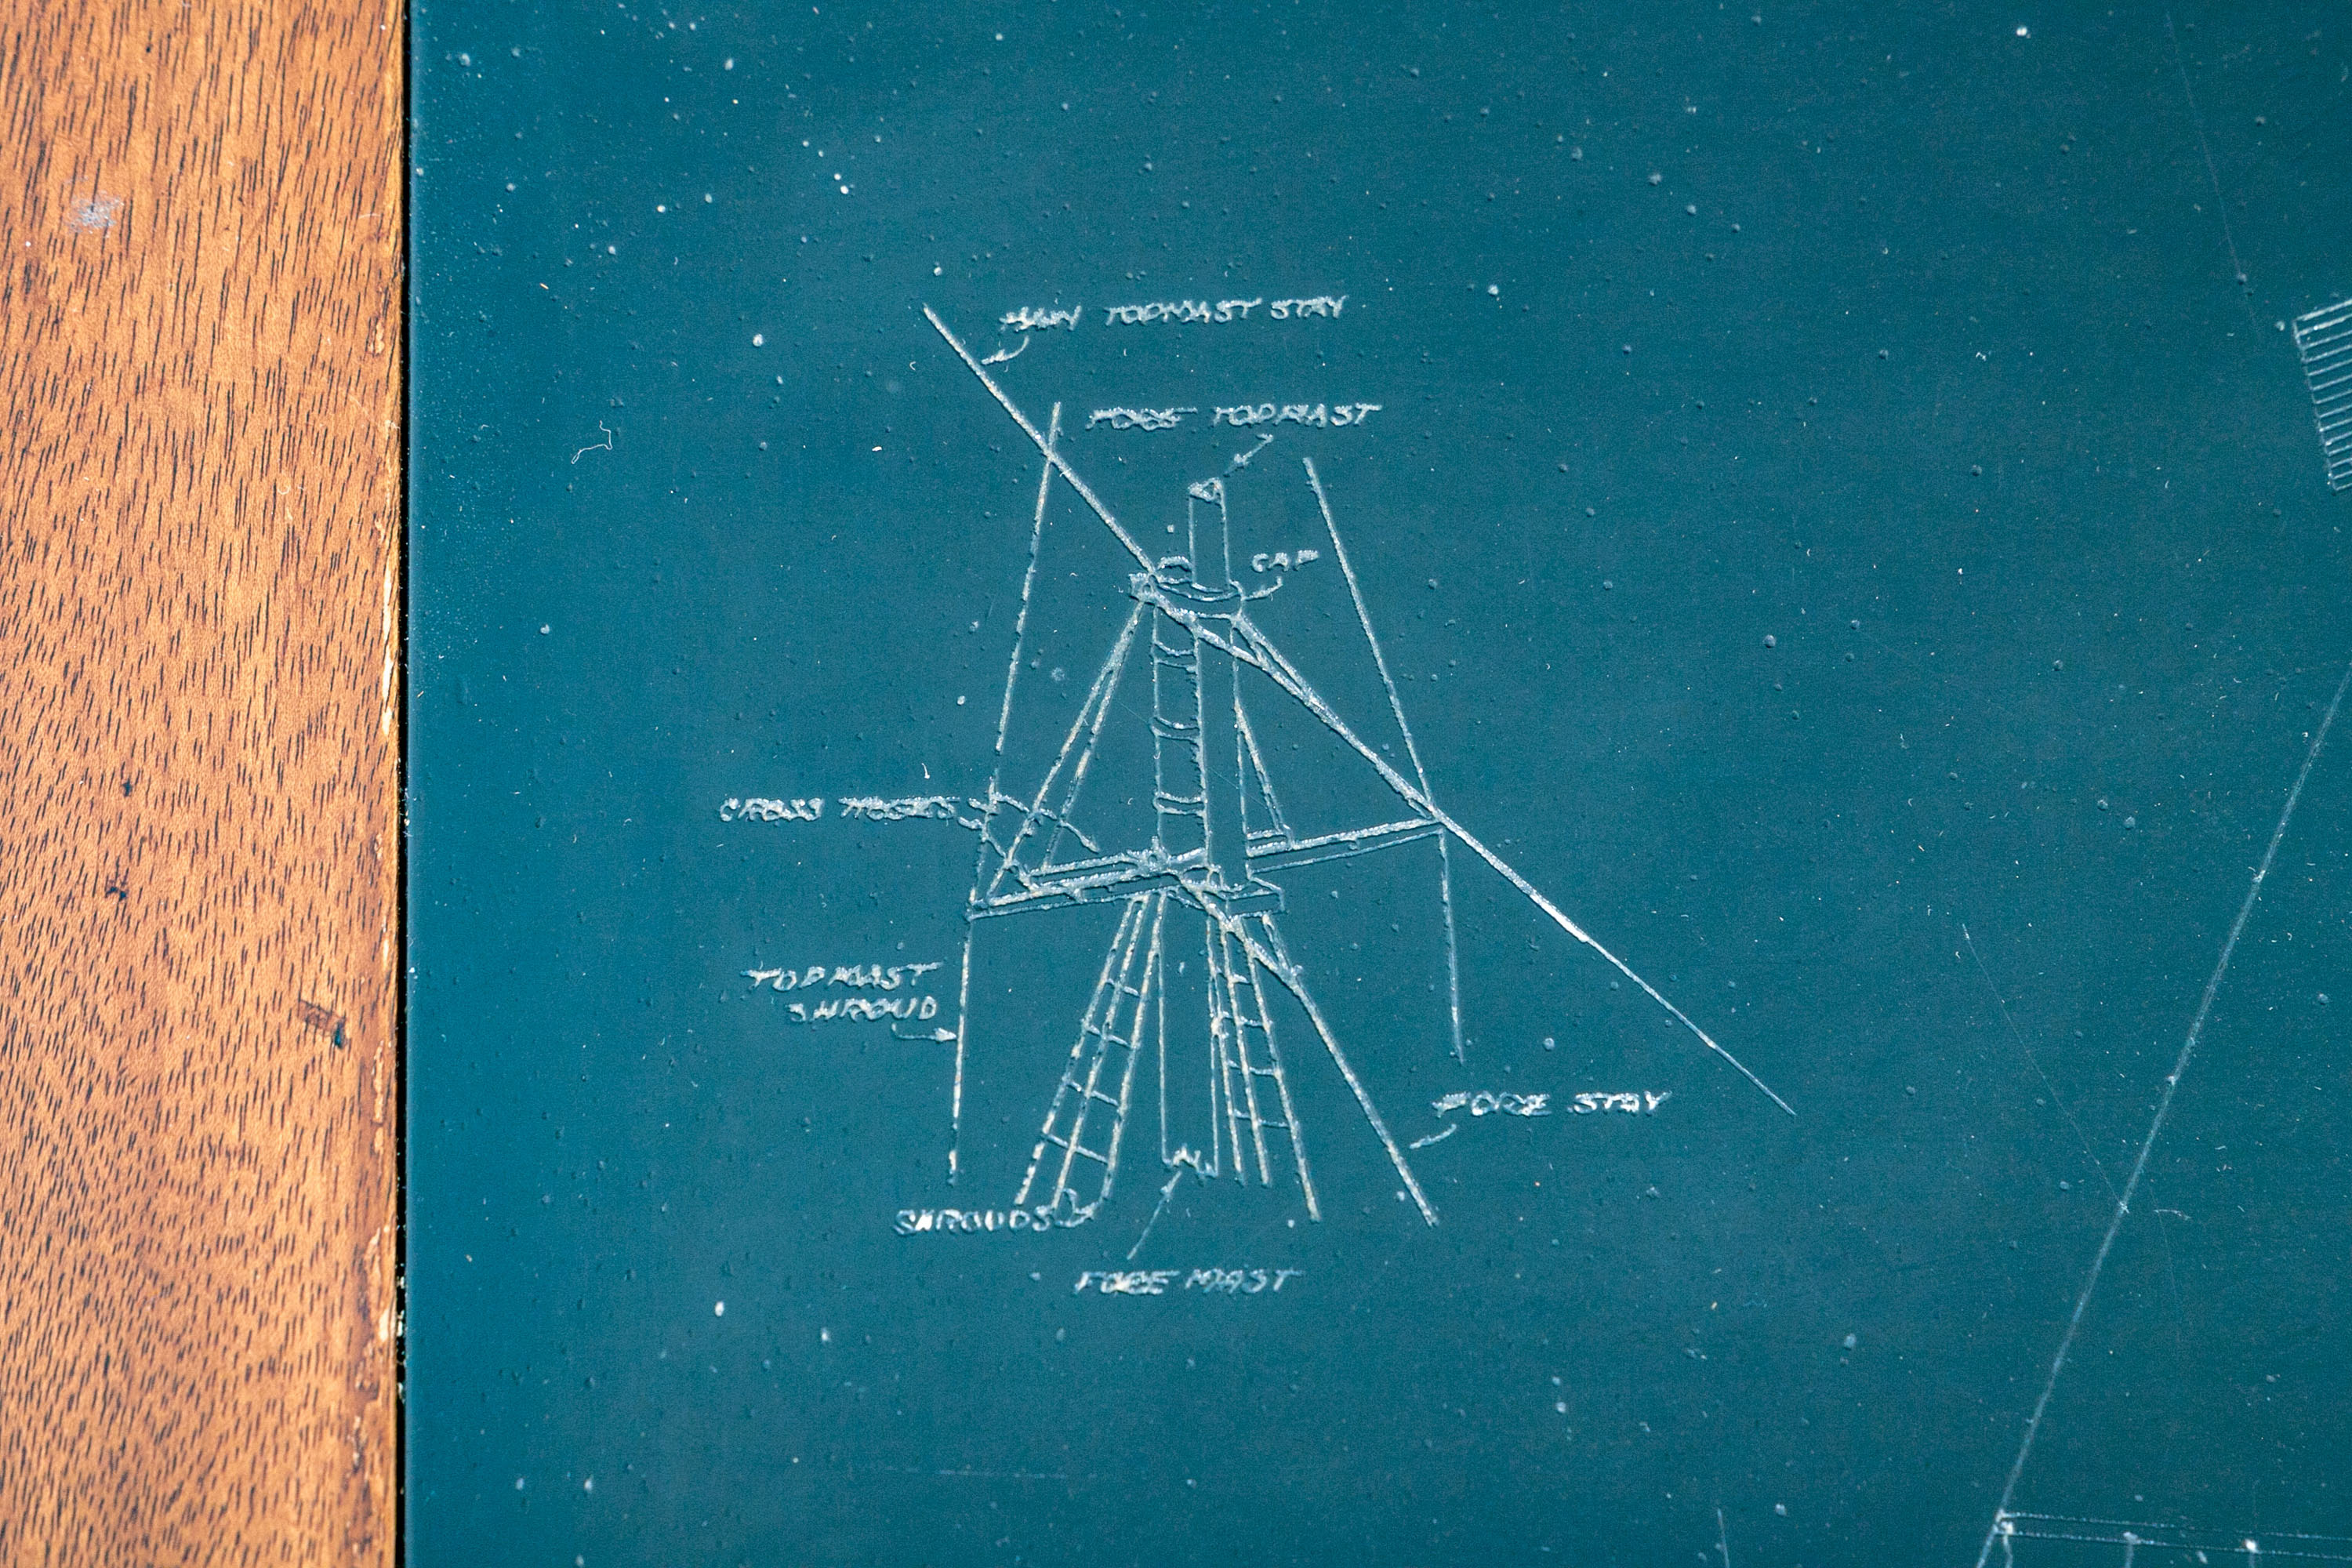 MAIN TOPMAST STAY
FORE TOPMAST
CAP
CROSS TREES
TOPMAST
SHROUD
FORE STAY
SHROUDS
FORE MAST